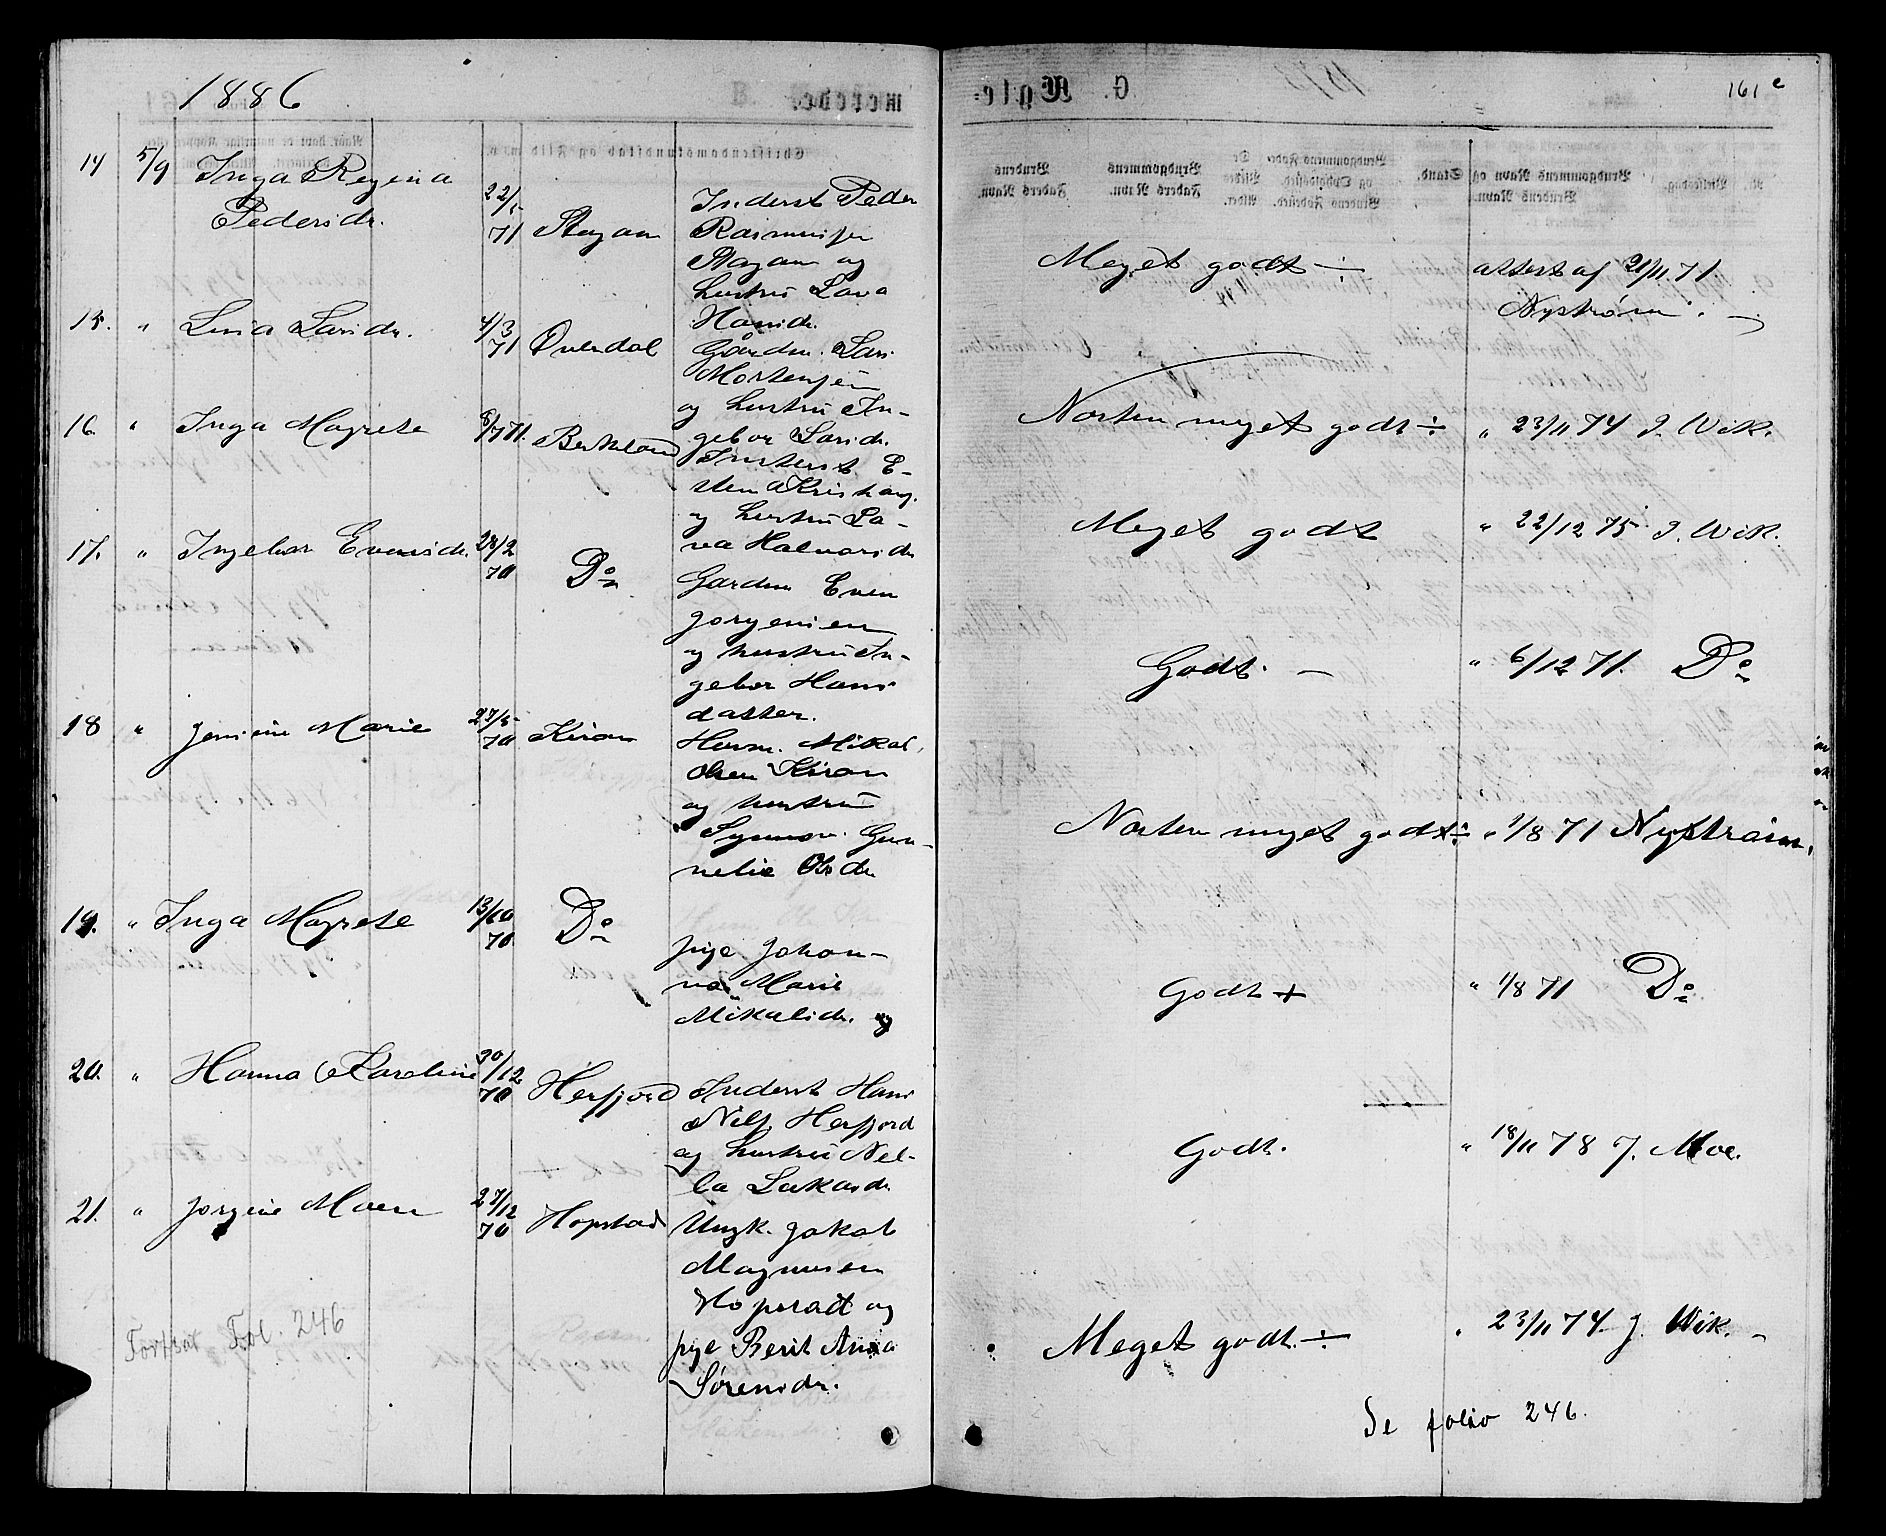 1886
161 c
14 5/9 Inga Regina
Pedersdr.
22/5
71
Stagan
Inderst Peder
Rasmussen
Stagan og
hustru Lava
Hansdr.
Meget godt ÷
attest af 21/11 71
Nystrøm.
15. " Lina Larsdr.
4/3
71
Overdal
Gårdm. Lars
Mortensen
og hustru In-
gebor Larsdr.
Næsten meget godt ÷
" 23/11 74 J. Wik.
16. " Inga Magrete
8/7 71.
Berkeland
Inderst E-
sten Kristians.
og hustru La-
va Halvorsdr
Meget godt
" 22/12 75 J. Wik.
17. " Ingebor Evensdr.
28/2
70
Do
Gardm Even
Jorgensen
og hustru In-
gebor Hans
datter.
Godt. —
" 6/12 71. Do
18 " Jensine Marie
27/5
70
Kiran
Husm. Mikal
Olsen Kiran
og hustru
Synnøv. Gun-
nelie Olsdr
Næsten meget godt ÷
" 1/8 71 Nystrøm.
19. " Inga Magrete
13/10
70
Do
pige Johan-
na Marie
Mikalsdr. og
Godt +
" 1/8 71 Do
20. " Hanna Karoline
30/12
70
Herfjord
Inderst Hans
Nils. Herfjord
og hustru Nel-
la Lukasdr.
Godt.
" 18/11 78 J. Moe.
21. " Jorgine Moen
27/12
70
Hopstad
Ungk. Jakob
Magnussen
Hopstad og
pige Berit Anna
Sørensdr.
Meget godt. ÷
" 23/11 74. J. Wik. —
Fortsat Fol. 246
Se folio 246.